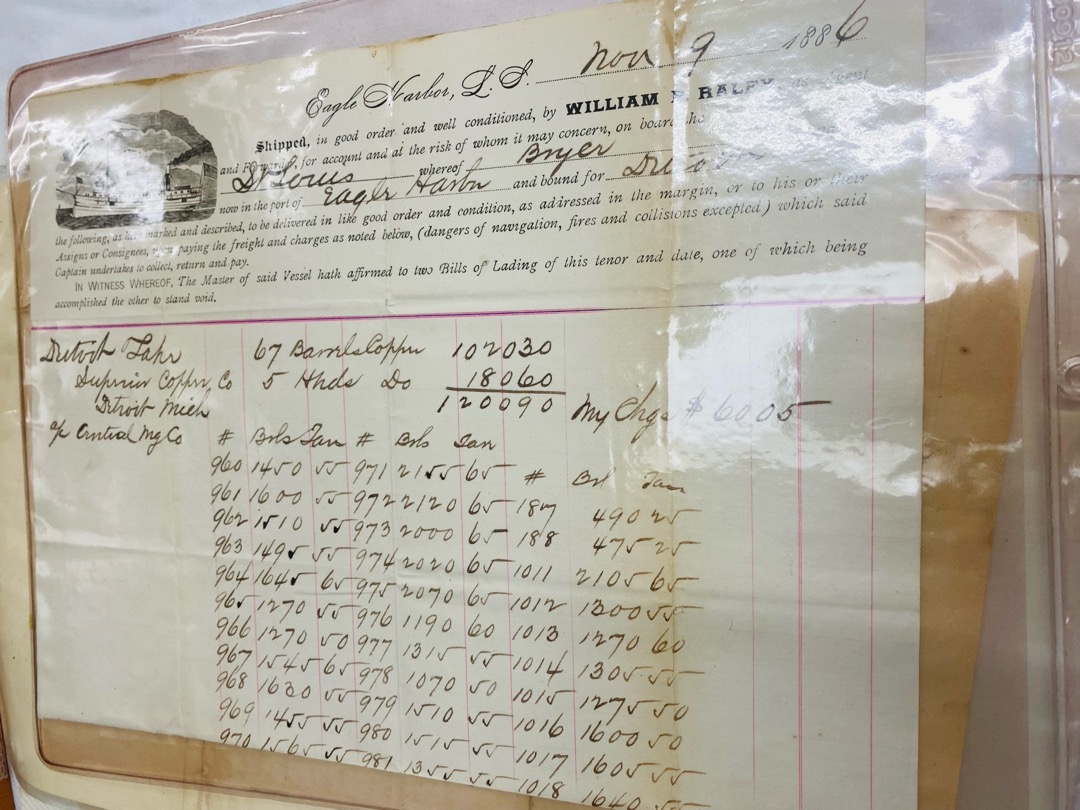 Eagle Harbor, L. S. Nov 9 1886
Shipped, in good order and well conditioned, by WILLIAM P. RALEY as Agent
and Forwarder, for account and at the risk of whom it may concern, on board the
St Louis whereof Bryer
now in the port of Eagle Harbor and bound for Detroit
the following, as here marked and described, to be delivered in like good order and condition, as addressed in the margin, or to his or their
Assigns or Consignees, upon paying the freight and charges as noted below, (dangers of navigation, fires and collisions excepted) which said
Captain undertakes to collect, return and pay.
IN WITNESS WHEREOF, The Master of said Vessel hath affirmed to two Bills of Lading of this tenor and date, one of which being
accomplished the other to stand void.
Detroit & Lake 67 Barrels Copper 102030
Superior Copper Co 5 Hhds Do 18060
Detroit Mich 120090 My Chgs $ 6005
a/c Central Mg Co # Brls Tare # Brls Tare
960 1450 55 971 2155 65 # Brl Tare
961 1600 55 972 2120 65 187 490 25
962 1510 55 973 2000 65 188 475 25
963 1495 55 974 2020 65 1011 2105 65
964 1645 65 975 2070 65 1012 1300 55
965 1270 55 976 1190 60 1013 1270 60
966 1270 50 977 1315 55 1014 1305 55
967 1545 65 978 1070 50 1015 1275 50
968 1630 55 979 1510 55 1016 1600 50
969 1455 55 980 1515 55 1017 1605 55
970 1565 55 981 1355 55 1018 1640 55